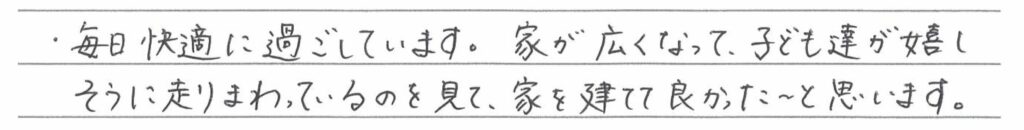 ・毎日快適に過ごしています。家が広くなって、子ども達が嬉し
そうに走りまわっているのを見て、家を建てて良かった〜と思います。